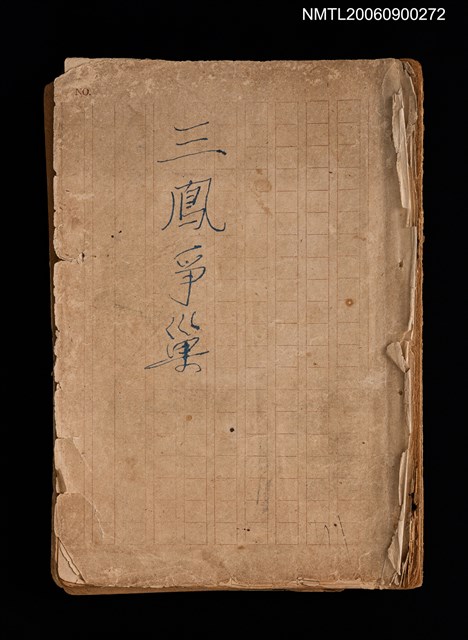 NMTL20060900272
NO.
三鳳爭巢